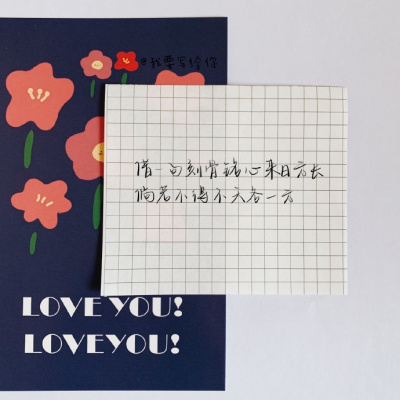 @我要写给你
借一句刻骨铭心来日方长
倘若不得不天各一方
LOVE YOU!
LOVEYOU!